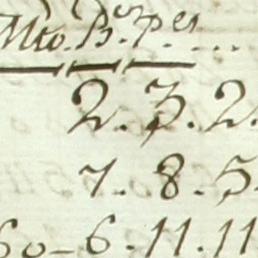 Mto. B.os p.es ....
2. 3. 2.
7. 8. 5.
60-6. 11. 11